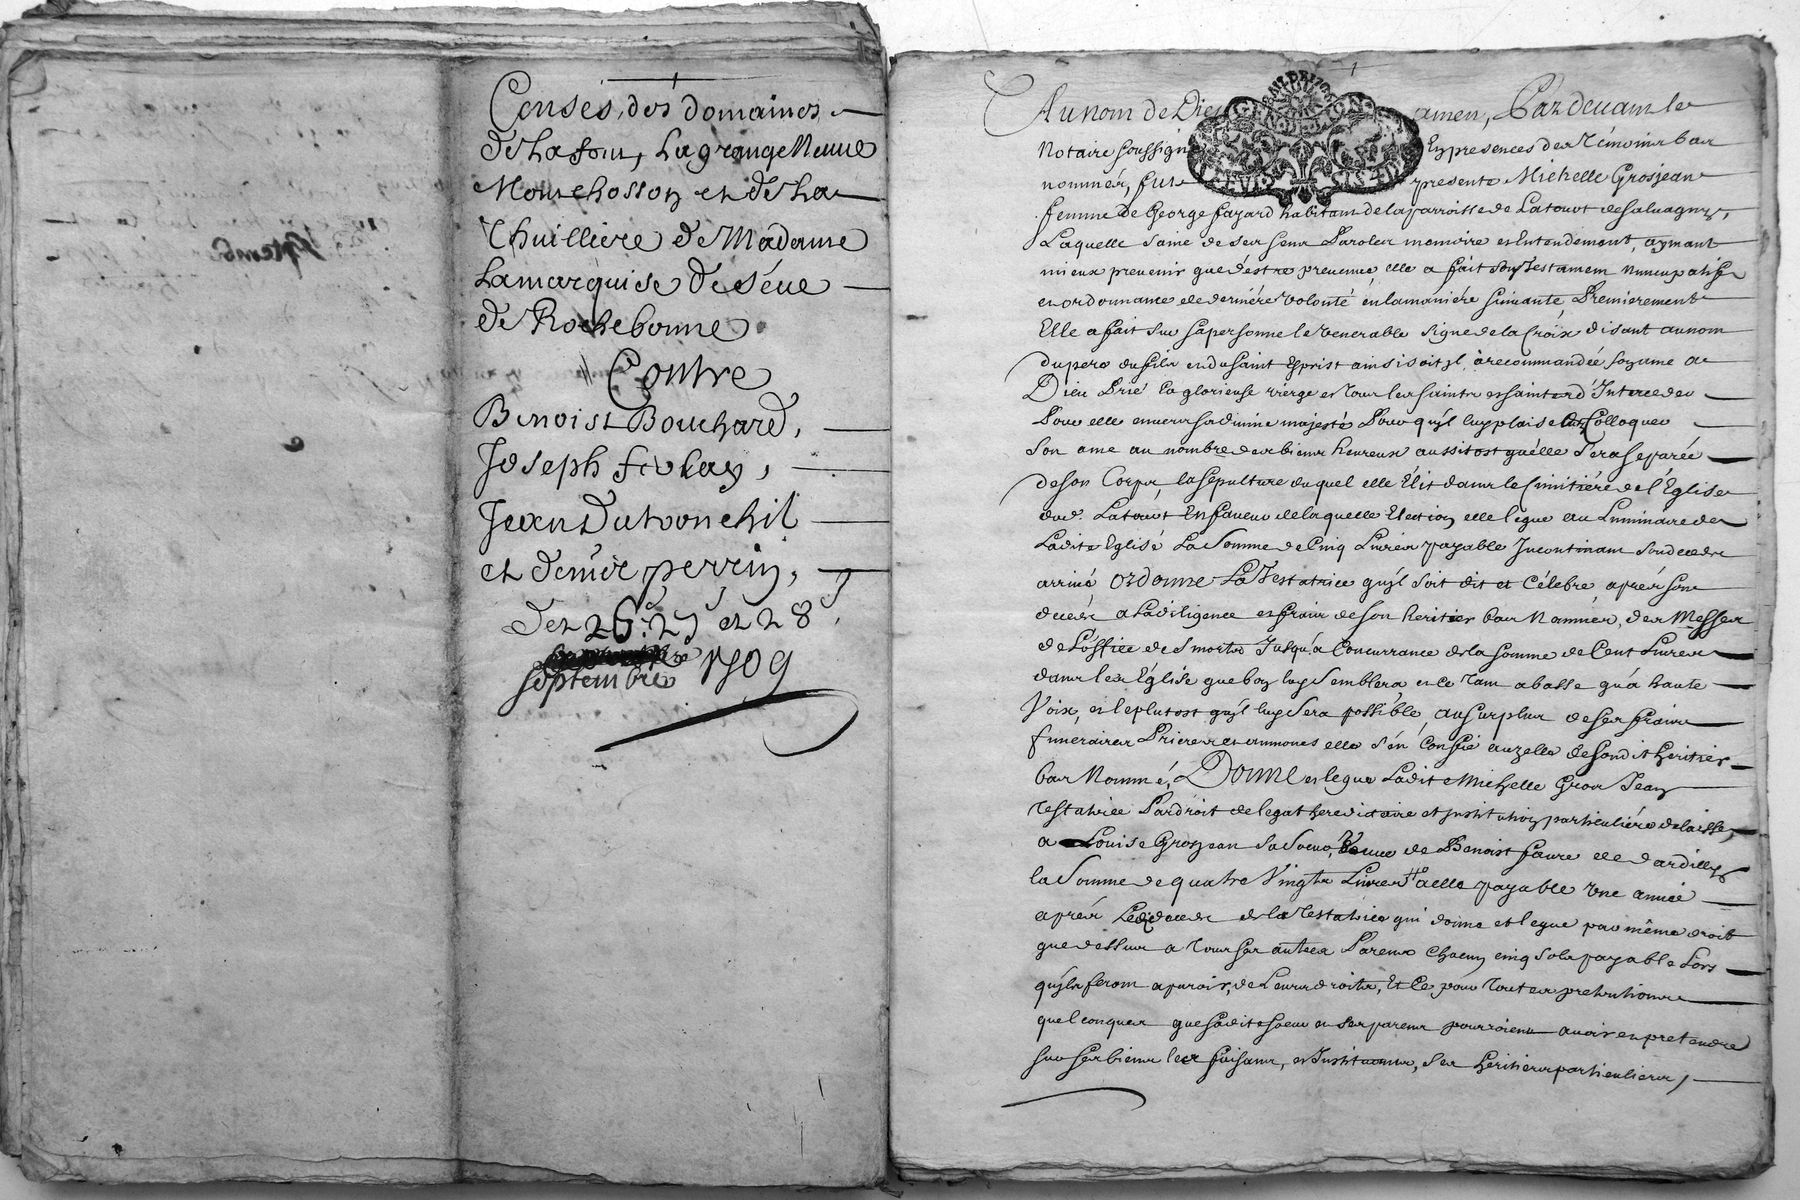 Septemb
Censes, des domaines
De La font, La grange Neuve
Monchosson et De La
Thuilliere De Madame
La marquise De Séve
De Rochebonne
Contre
Benoist Bouchard,
Joseph
Jean Dutronchil
et Denis perrin,
Des 26. 27 et 28
septembre 1709
Au nom de Dieu amen, Pardevant le
Notaire soussigné En presences des Témoins bas
nommés, fut presente Michelle Grosjean
femme de George fayard habitant de la parroisse de Latour de Salvagny,
Laquelle saine de ses sens Paroles memoire et Entendement, aymant
mieux prevenir que d'estre prevenue, elle a fait son Testament Nuncupatif
et ordonnance de derniére volonté en la maniére suivante, Premierement
Elle a fait sur sa personne le venerable signe de la Croix disant au nom
du pere du fils et du saint Esprist ainsi soit jl, à recommandée son ame a
Dieu Prié la glorieuse vierge et Tous les saints et saintes d'Interceder
Pour elle envers sa divine majesté Pour qu'jl luy plaise Colloquer
son ame au nombre des bienheureux aussitost qu'élle sera separée
de son Corps, la sépulture duquel elle Élit dans le Cimitiére de l'Église
dud. Latour En faveur de laquelle Election elle legue au Luminaire de
Ladite Eglise La Somme de Cinq Livres payable Incontinant son deceds
arrivé, ordonne La Testatrice qu'jl soit dit et Célébré aprés son
deceds a la diligence et frais de son heritier bas Nommé, des Messes
de L'office des morts Jusqu'à Concurrance de la somme de Cent Livres
dans les Église que bon luy Semblera et ce Tant a basse qu'à haute
Voix, et le plutost qu'jl luy Sera possible, au surplus de ses fraix
funeraires Prieres et aumones elle s'en Confie au zelle de son dit heritier
bas Nommé, Donne et legue Ladite Michelle Gros Jean
Testatrice Par droit de legat hereditaire et institution particuliére delaisse,
a Louise Grosjean sa Soeur, veuve de Benoist faure de dardilly
la Somme de quatre Vingts Livres a elle payable Une année
aprés Le deceds de la Testatrice qui donne et legue par même droit
que dessus a Tous ses autres Parens Chacun cinq sols payable Lors
qu'jls feront aparoir, de Leurs droits, Et Ce pour Toutes pretentions
quelconques que sadite soeur et ses parens pourroient avoir et pretendre
sur ses biens les faisant, et Instituant, ses heritiers particuliers,